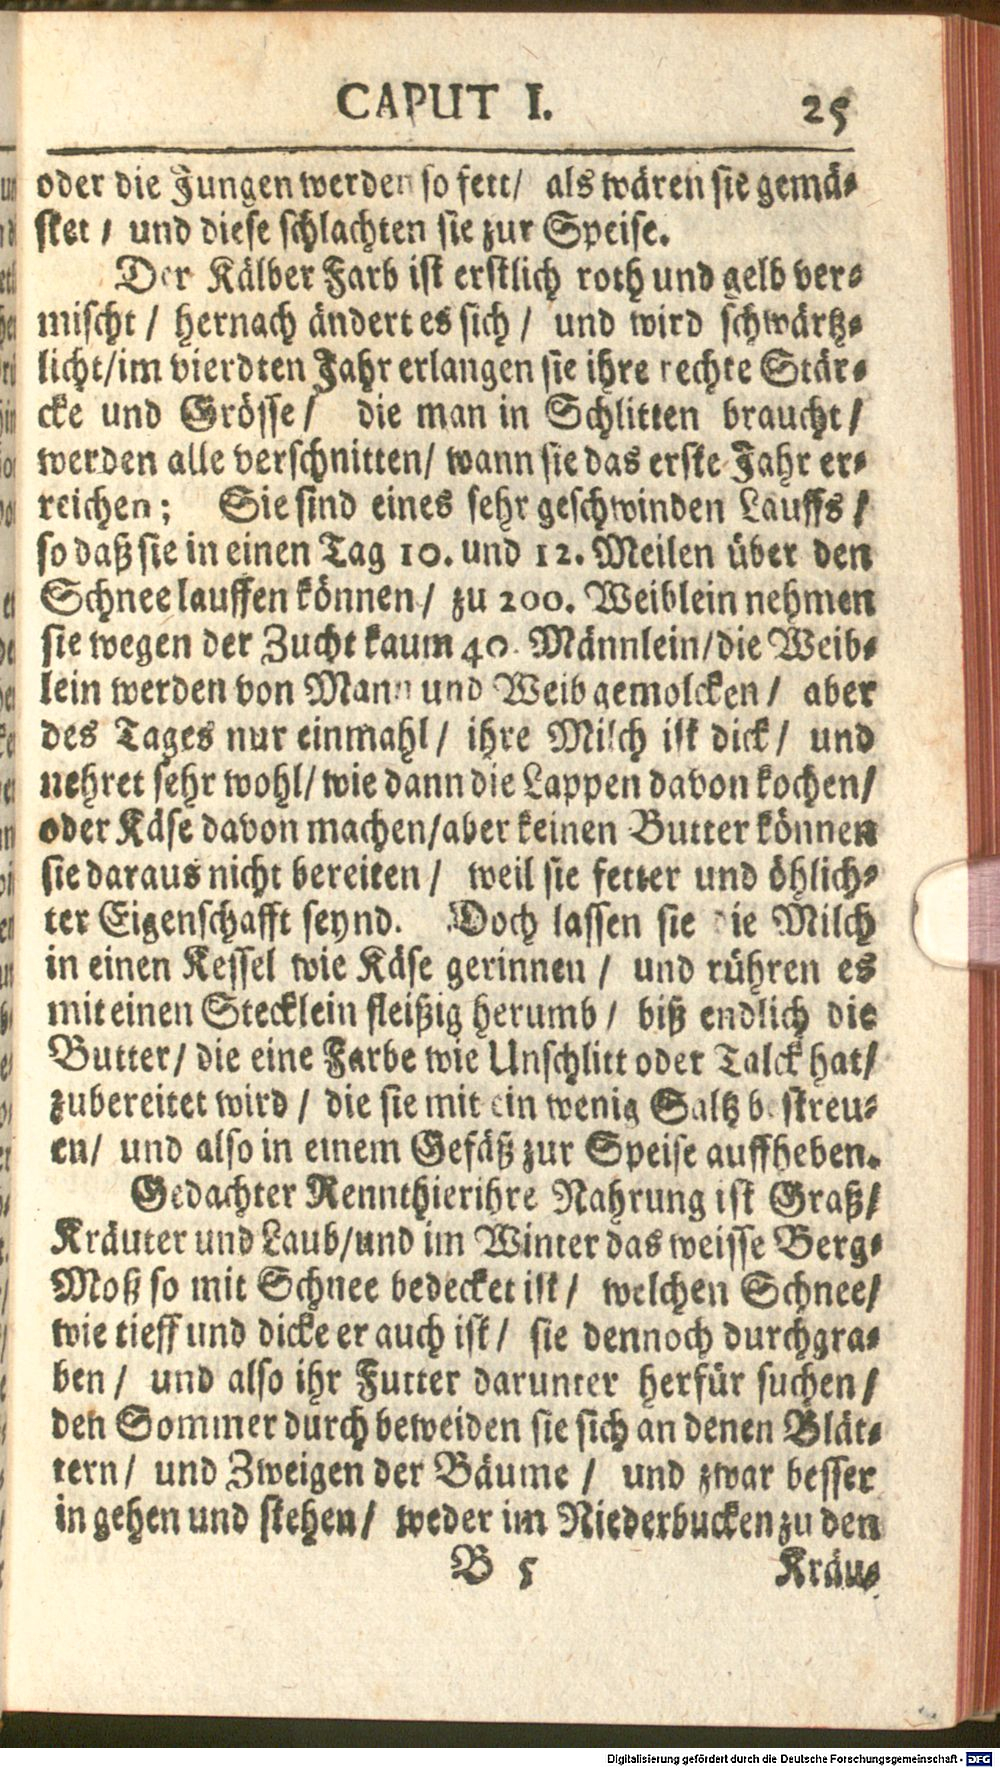 CAPUT I. 25
oder die Jungen werden so fett/ als wären sie gemä-
stet / und diese schlachten sie zur Speise.
Der Kälber Farb ist erstlich roth und gelb ver-
mischt / hernach ändert es sich / und wird schwärtz-
licht/im vierdten Jahr erlangen sie ihre rechte Stär-
cke und Grösse / die man in Schlitten braucht /
werden alle verschnitten/ wann sie das erste Jahr er-
reichen; Sie sind eines sehr geschwinden Lauffs /
so daß sie in einen Tag 10. und 12. Meilen über den
Schnee lauffen können / zu 200. Weiblein nehmen
sie wegen der Zucht kaum 40. Männlein/die Weib-
lein werden von Mann und Weib gemolcken / aber
des Tages nur einmahl / ihre Milch ist dick / und
nehret sehr wohl/ wie dann die Lappen davon kochen/
oder Käse davon machen/aber keinen Butter können
sie daraus nicht bereiten / weil sie fetter und öhlich-
ter Eigenschafft seynd. Doch lassen sie die Milch
in einen Kessel wie Käse gerinnen / und rühren es
mit einen Stecklein fleißig herumb / biß endlich die
Butter/ die eine Farbe wie Unschlitt oder Talck hat/
zubereitet wird / die sie mit ein wenig Saltz bestreu-
en/ und also in einem Gefäß zur Speise auffheben.
Gedachter Rennthier ihre Nahrung ist Graß/
Kräuter und Laub/und im Winter das weisse Berg-
Moß so mit Schnee bedecket ist / welchen Schnee/
wie tieff und dicke er auch ist / sie dennoch durchgra-
ben / und also ihr Futter darunter herfür suchen /
den Sommer durch beweiden sie sich an denen Blät-
tern / und Zweigen der Bäume / und zwar besser
in gehen und stehen / weder im Niederbucken zu den
B 5 Kräu-
Digitalisierung gefördert durch die Deutsche Forschungsgemeinschaft - DFG